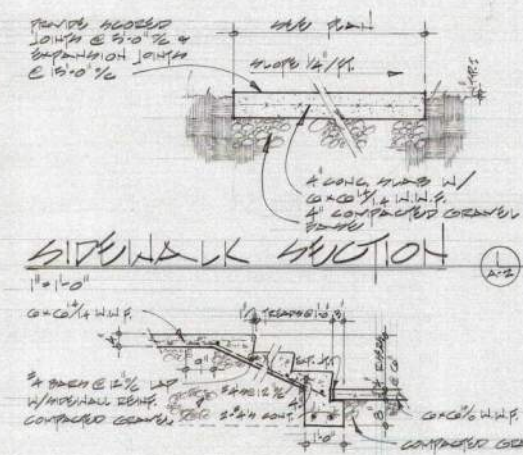 PROVIDE SCORED
JOINTS @ 5'-0" O/C &
EXPANSION JOINTS
@ 15'-0" O/C
SEE PLAN
SLOPE 1/4"/FT.
4" CONC. SLAB W/
6x6 1.4/1.4 W.W.F.
4" COMPACTED GRAVEL
BASE
SIDEWALK SECTION
1" = 1'-0"
L
A-2
6x6 1.4/1.4 W.W.F.
TREADS @ 1'-0"
9"
#4 BARS @ 12" O/C LAP
W/ SIDEWALK REINF.
COMPACTED GRAVEL
#4 @ 12" O/C
2-#4'S CONT.
RISERS
1'-0"
W.W.F.
COMPACTED GRA